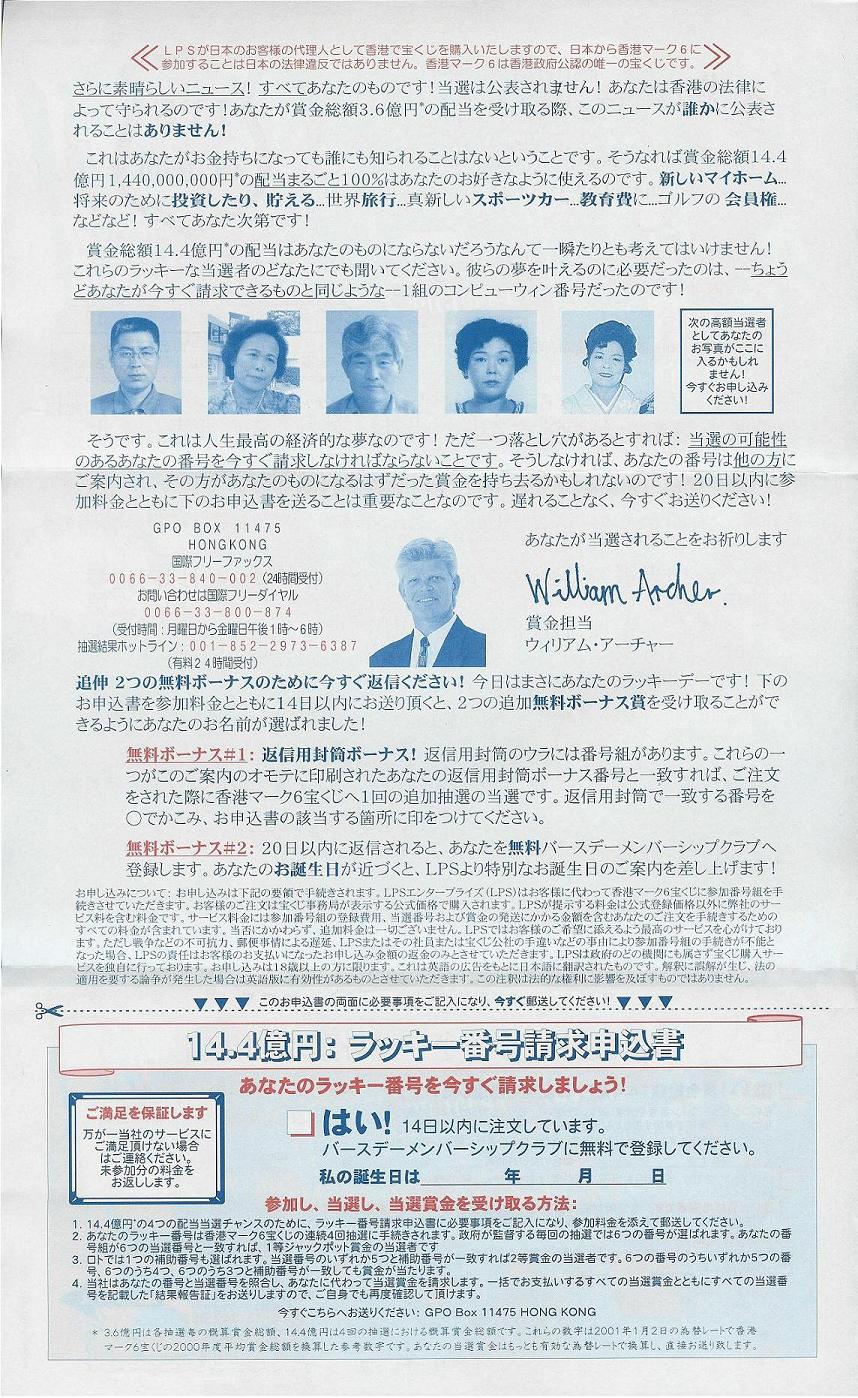 LPSが日本のお客様の代理人として香港で宝くじを購入いたしますので、日本から香港マーク6に
参加することは日本の法律違反ではありません。香港マーク6は香港政府公認の唯一の宝くじです。
さらに素晴らしいニュース! すべてあなたのものです!当選は公表されません! あなたは香港の法律に
よって守られるのです!あなたが賞金総額3.6億円*の配当を受け取る際、このニュースが誰かに公表さ
れることはありません!
これはあなたがお金持ちになっても誰にも知られることはないということです。そうなれば賞金総額14.4
億円1,440,000,000円*の配当まるごと100%はあなたのお好きなように使えるのです。新しいマイホーム...
将来のために投資したり、貯える...世界旅行...真新しいスポーツカー...教育費に...ゴルフの 会員権...
などなど! すべてあなた次第です!
賞金総額14.4億円*の配当はあなたのものにならないだろうなんて一瞬たりとも考えてはいけません!
これらのラッキーな当選者のどなたにでも聞いてください。彼らの夢を叶えるのに必要だったのは、--ちょう
どあなたが今すぐ請求できるものと同じような--1組のコンピューウィン番号だったのです!
次の高額当選者
としてあなたの
お写真がここに
入るかもしれ
ません!
今すぐお申し込み
ください!
そうです。これは人生最高の経済的な夢なのです! ただ一つ落とし穴があるとすれば: 当選の可能性
のあるあなたの番号を今すぐ請求しなければならないことです。そうしなければ、あなたの番号は他の方に
ご案内され、その方があなたのものになるはずだった賞金を持ち去るかもしれないのです! 20日以内に参
加料金とともに下のお申込書を送ることは重要なことなのです。遅れることなく、今すぐお送りください!
GPO BOX 11475
HONGKONG
国際フリーファックス
0066-33-840-002 (24時間受付)
お問い合わせは国際フリーダイヤル
0066-33-800-874
(受付時間:月曜日から金曜日午後1時~6時)
抽選結果ホットライン:001-852-2973-6387
(有料24時間受付)
あなたが当選されることをお祈りします
William Archer.
賞金担当
ウィリアム・アーチャー
追伸 2つの無料ボーナスのために今すぐ返信ください! 今日はまさにあなたのラッキーデーです! 下の
お申込書を参加料金とともに14日以内にお送り頂くと、2つの追加無料ボーナス賞を受け取ることがで
きるようにあなたのお名前が選ばれました!
無料ボーナス#1: 返信用封筒ボーナス! 返信用封筒のウラには番号組があります。これらの一
つがこのご案内のオモテに印刷されたあなたの返信用封筒ボーナス番号と一致すれば、ご注文
をされた際に香港マーク6宝くじへ1回の追加抽選の当選です。返信用封筒で一致する番号を
○でかこみ、お申込書の該当する箇所に印をつけてください。
無料ボーナス#2: 20日以内に返信されると、あなたを無料バースデーメンバーシップクラブへ
登録します。あなたのお誕生日が近づくと、LPSより特別なお誕生日のご案内を差し上げます!
お申し込みについて: お申し込みは下記の要領で手続きされます。LPSエンタープライズ (LPS)はお客様に代わって香港マーク6宝くじに参加番号組を手
続きさせていただきます。お客様のご注文は宝くじ事務局が表示する公式価格で購入されます。LPSが提示する料金は公式登録価格以外に弊社のサー
ビス料を含む料金です。サービス料金には参加番号組の登録費用、当選番号および賞金の発送にかかる金額を含むあなたのご注文を手続きするための
すべての料金が含まれています。当否にかかわらず、追加料金は一切ございません。LPSではお客様のご希望に添えるよう最高のサービスを心がけており
ます。ただし戦争などの不可抗力、郵便事情による遅延、LPSまたはその社員または宝くじ公社の手違いなどの事由により参加番号組の手続きが不能と
なった場合、LPSの責任はお客様のお支払いになったお申し込み金額の返金のみとさせていただきます。LPSは政府のどの機関にも属さず宝くじ購入サー
ビスを独自に行っております。お申し込みは18歳以上の方に限ります。これは英語の広告をもとに日本語に翻訳されたものです。解釈に誤解が生じ、法の
適用を要する論争が発生した場合は英語版に有効性があるものとさせていただきます。この注釈は法的な権利に影響を及ぼすものではありません。
▼▼▼ このお申込書の両面に必要事項をご記入になり、今すぐ郵送してください! ▼▼▼
14.4億円: ラッキー番号請求申込書
あなたのラッキー番号を今すぐ請求しましょう!
ご満足を保証します
万が一当社のサービスに
ご満足頂けない場合
はご連絡ください。
未参加分の料金を
お返しします。
はい! 14日以内に注文しています。
バースデーメンバーシップクラブに無料で登録してください。
私の誕生日は 年 月 日
参加し、当選し、当選賞金を受け取る方法:
1. 14.4億円*の4つの配当当選チャンスのために、ラッキー番号請求申込書に必要事項をご記入になり、参加料金を添えて郵送してください。
2. あなたのラッキー番号は香港マーク6宝くじの連続4回抽選に手続きされます。政府が監督する毎回の抽選では6つの番号が選ばれます。あなたの番
号組が6つの当選番号と一致すれば、1等ジャックポット賞金の当選者です
3. ロトでは1つの補助番号も選ばれます。当選番号のいずれか5つと補助番号が一致すれば2等賞金の当選者です。6つの番号のうちいずれか5つの番
号、6つのうち4つ、6つのうち3つと補助番号が一致しても賞金が当たります。
4. 当社はあなたの番号と当選番号を照合し、あなたに代わって当選賞金を請求します。一括でお支払いするすべての当選賞金とともにすべての当選番
号を記載した「結果報告証」をお送りしますので、ご自身でも再度確認して頂けます。
今すぐこちらへお送りください: GPO Box 11475 HONG KONG
* 3.6億円は各抽選毎の概算賞金総額、14.4億円は4回の抽選における概算賞金総額です。これらの数字は2001年1月2日の為替レートで香港
マーク6宝くじの2000年度平均賞金総額を換算した参考数字です。あなたの当選賞金はもっとも有効な為替レートで換算し、直接お送り致します。